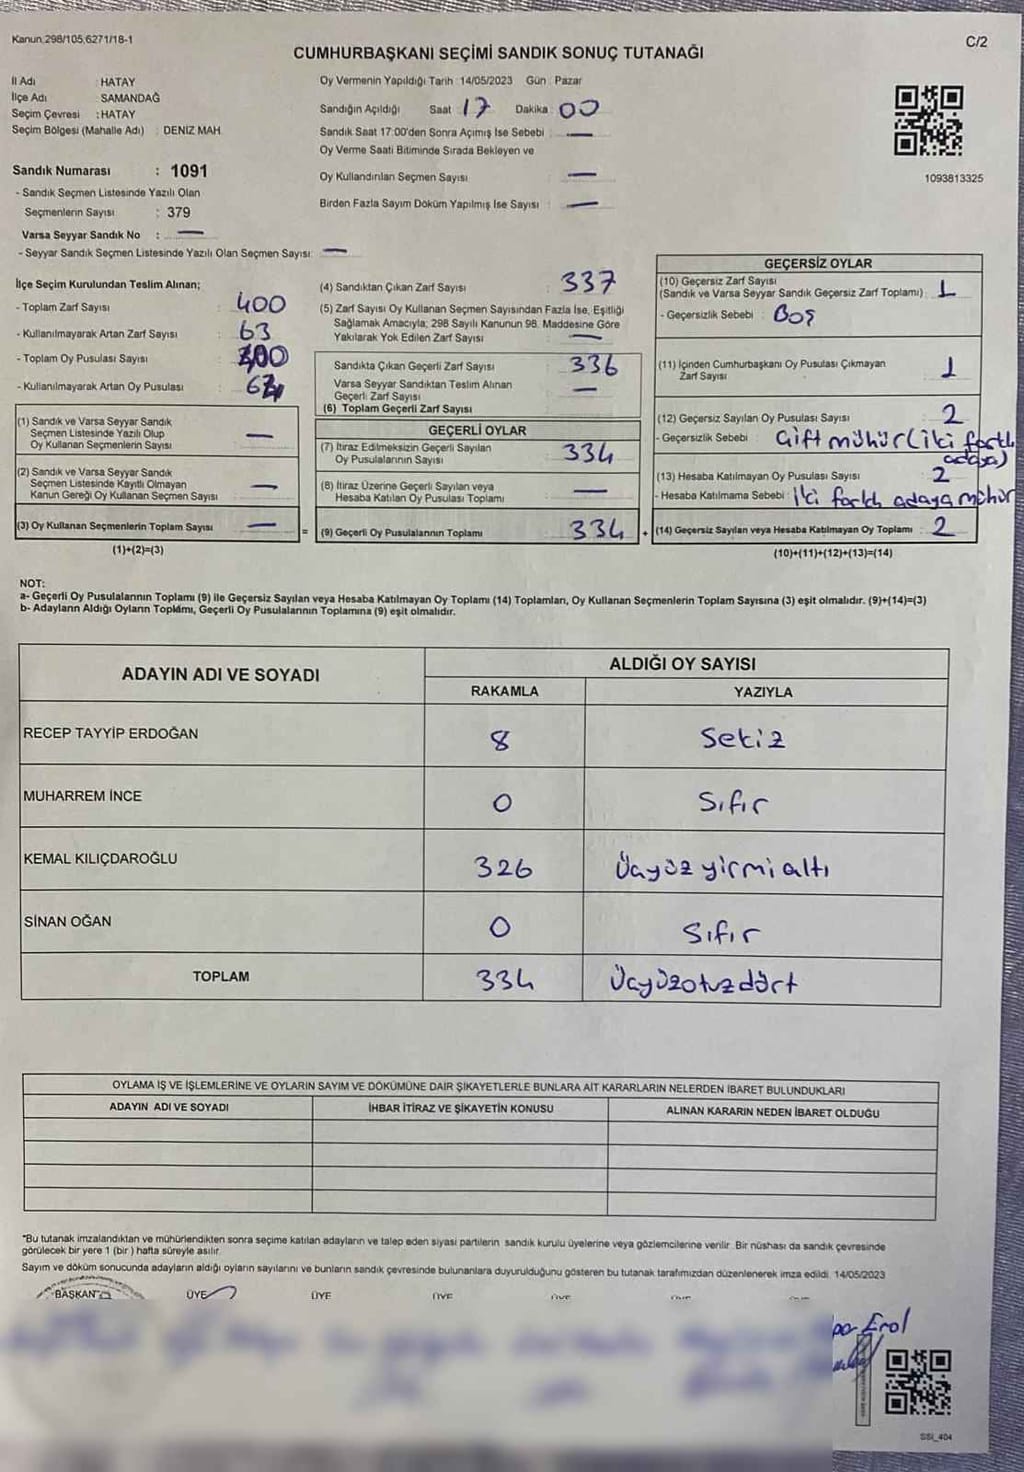 Kanun,298/105,6271/18-1
C/2
CUMHURBAŞKANI SEÇİMİ SANDIK SONUÇ TUTANAĞI
İl Adı : HATAY
İlçe Adı SAMANDAĞ
Seçim Çevresi : HATAY
Seçim Bölgesi (Mahalle Adı) : DENİZ MAH.
Oy Vermenin Yapıldığı Tarih : 14/05/2023 Gün : Pazar
Sandığın Açıldığı Saat : 17 Dakika : 00
Sandık Saat 17:00'den Sonra Açımış İse Sebebi : —
Oy Verme Saati Bitiminde Sırada Bekleyen ve
Oy Kullandırılan Seçmen Sayısı : —
Birden Fazla Sayım Döküm Yapılmış İse Sayısı : —
1093813325
Sandık Numarası : 1091
- Sandık Seçmen Listesinde Yazılı Olan
Seçmenlerin Sayısı : 379
Varsa Seyyar Sandık No : —
- Seyyar Sandık Seçmen Listesinde Yazılı Olan Seçmen Sayısı: —
İlçe Seçim Kurulundan Teslim Alınan;
- Toplam Zarf Sayısı : 400
- Kullanılmayarak Artan Zarf Sayısı : 63
- Toplam Oy Pusulası Sayısı : 400
- Kullanılmayarak Artan Oy Pusulası :
(1) Sandık ve Varsa Seyyar Sandık
Seçmen Listesinde Yazılı Olup
Oy Kullanan Seçmenlerin Sayısı —
(2) Sandık ve Varsa Seyyar Sandık
Seçmen Listesinde Kayıtlı Olmayan
Kanun Gereği Oy Kullanan Seçmen Sayısı —
(3) Oy Kullanan Seçmenlerin Toplam Sayısı —
(1)+(2)=(3)
(4) Sandıktan Çıkan Zarf Sayısı : 337
(5) Zarf Sayısı Oy Kullanan Seçmen Sayısından Fazla İse, Eşitliği
Sağlamak Amacıyla; 298 Sayılı Kanunun 98. Maddesine Göre
Yakılarak Yok Edilen Zarf Sayısı : —
Sandıkta Çıkan Geçerli Zarf Sayısı : 336
Varsa Seyyar Sandıktan Teslim Alınan
Geçerli Zarf Sayısı : —
(6) Toplam Geçerli Zarf Sayısı
GEÇERLİ OYLAR
(7) İtiraz Edilmeksizin Geçerli Sayılan
Oy Pusulalarının Sayısı : 334
(8) İtiraz Üzerine Geçerli Sayılan veya
Hesaba Katılan Oy Pusulası Toplamı : —
= (9) Geçerli Oy Pusulalarının Toplamı : 334 +
GEÇERSİZ OYLAR
(10) Geçersiz Zarf Sayısı
(Sandık ve Varsa Seyyar Sandık Geçersiz Zarf Toplamı) : 1
- Geçersizlik Sebebi : Boş
(11) İçinden Cumhurbaşkanı Oy Pusulası Çıkmayan
Zarf Sayısı : 1
(12) Geçersiz Sayılan Oy Pusulası Sayısı : 2
- Geçersizlik Sebebi : Çift mühür (iki farklı
adaya)
(13) Hesaba Katılmayan Oy Pusulası Sayısı : 2
- Hesaba Katılmama Sebebi : İki farklı adaya mühür
(14) Geçersiz Sayılan veya Hesaba Katılmayan Oy Toplamı : 2
(10)+(11)+(12)+(13)=(14)
NOT:
a- Geçerli Oy Pusulalarının Toplamı (9) ile Geçersiz Sayılan veya Hesaba Katılmayan Oy Toplamı (14) Toplamları, Oy Kullanan Seçmenlerin Toplam Sayısına (3) eşit olmalıdır. (9)+(14)=(3)
b- Adayların Aldığı Oyların Toplamı, Geçerli Oy Pusulalarının Toplamına (9) eşit olmalıdır.
ADAYIN ADI VE SOYADI ALDIĞI OY SAYISI
RAKAMLA YAZIYLA
RECEP TAYYİP ERDOĞAN 8 Sekiz
MUHARREM İNCE 0 Sıfır
KEMAL KILIÇDAROĞLU 326 Üçyüz yirmi altı
SİNAN OĞAN 0 Sıfır
TOPLAM 334 Üçyüzotuzdört
OYLAMA İŞ VE İŞLEMLERİNE VE OYLARIN SAYIM VE DÖKÜMÜNE DAİR ŞİKAYETLERLE BUNLARA AİT KARARLARIN NELERDEN İBARET BULUNDUKLARI
ADAYIN ADI VE SOYADI İHBAR İTİRAZ VE ŞİKAYETİN KONUSU ALINAN KARARIN NEDEN İBARET OLDUĞU
"Bu tutanak imzalandıktan ve mühürlendikten sonra seçime katılan adayların ve talep eden siyasi partilerin sandık kurulu üyelerine veya gözlemcilerine verilir. Bir nüshası da sandık çevresinde
görülecek bir yere 1 (bir) hafta süreyle asılır.
Sayım ve döküm sonucunda adayların aldığı oyların sayılarını ve bunların sandık çevresinde bulunanlara duyurulduğunu gösteren bu tutanak tarafımızdan düzenlenerek imza edildi. 14/05/2023
BAŞKAN ÜYE ÜYE ÜYE ÜYE
Erol
SSI_404